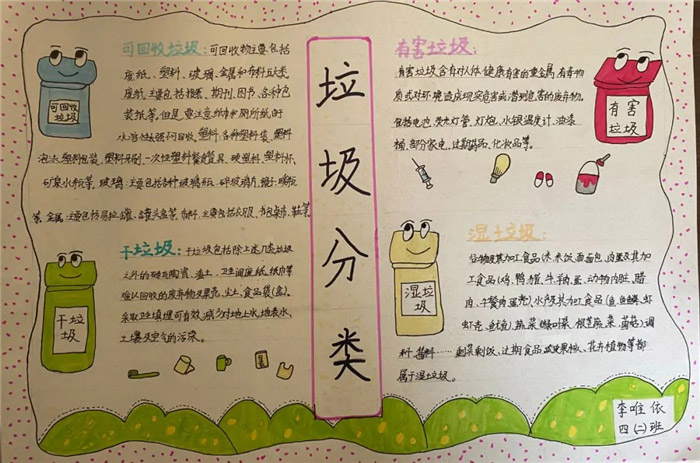 可回收垃圾:可回收物主要包括
废纸、塑料、玻璃、金属和布料五大类
废纸主要包括报纸、期刊、图书、各种包
装纸等。但是,要注意纸巾和厕所纸由
水溶性太强不可回收,塑料:各种塑料袋、塑料
泡沫、塑料包装、塑料牙刷、一次性塑料餐盒餐具、硬塑料、塑料杯、
矿泉水瓶等,玻璃:主要包括各种玻璃瓶、碎玻璃片、镜子、暖瓶
等,金属:主要包括易拉罐、罐头盒等,布料:主要包括衣服、书包、鞋等
可回收
垃圾
干垃圾:干垃圾包括除上述几类垃圾
之外的砖瓦陶瓷、渣土、卫生间废纸、纸巾等
难以回收的废弃物及果壳、尘土、食品袋(盒)。
采取卫生填埋可有效减少对地下水、地表水、
土壤及空气的污染。
干垃
圾
垃圾分类
有害垃圾:
有害垃圾含有对人体健康有害的重金属、有毒物
质或对环境造成现实危害或潜在危害的废弃物。
包括电池、荧光灯管、灯泡、水银温度计、油漆
桶、部分家电、过期药品、化妆品等。
有害
垃圾
湿土垃圾:
谷物及其加工食品(米、米饭、面、面包、肉蛋及其加
工食品(鸡、鸭、猪、牛、羊肉、蛋、动物内脏、腊
肉、午餐肉、蛋壳)水产及其加工食品(鱼、鱼鳞、虾
虾壳、鱿鱼)蔬菜(绿叶菜、根茎蔬菜、菌菇)调
料、酱料……剩菜剩饭、过期食品、瓜皮果核、花卉植物等都
属于湿土垃圾。
湿垃
圾
李唯依
四(二)班